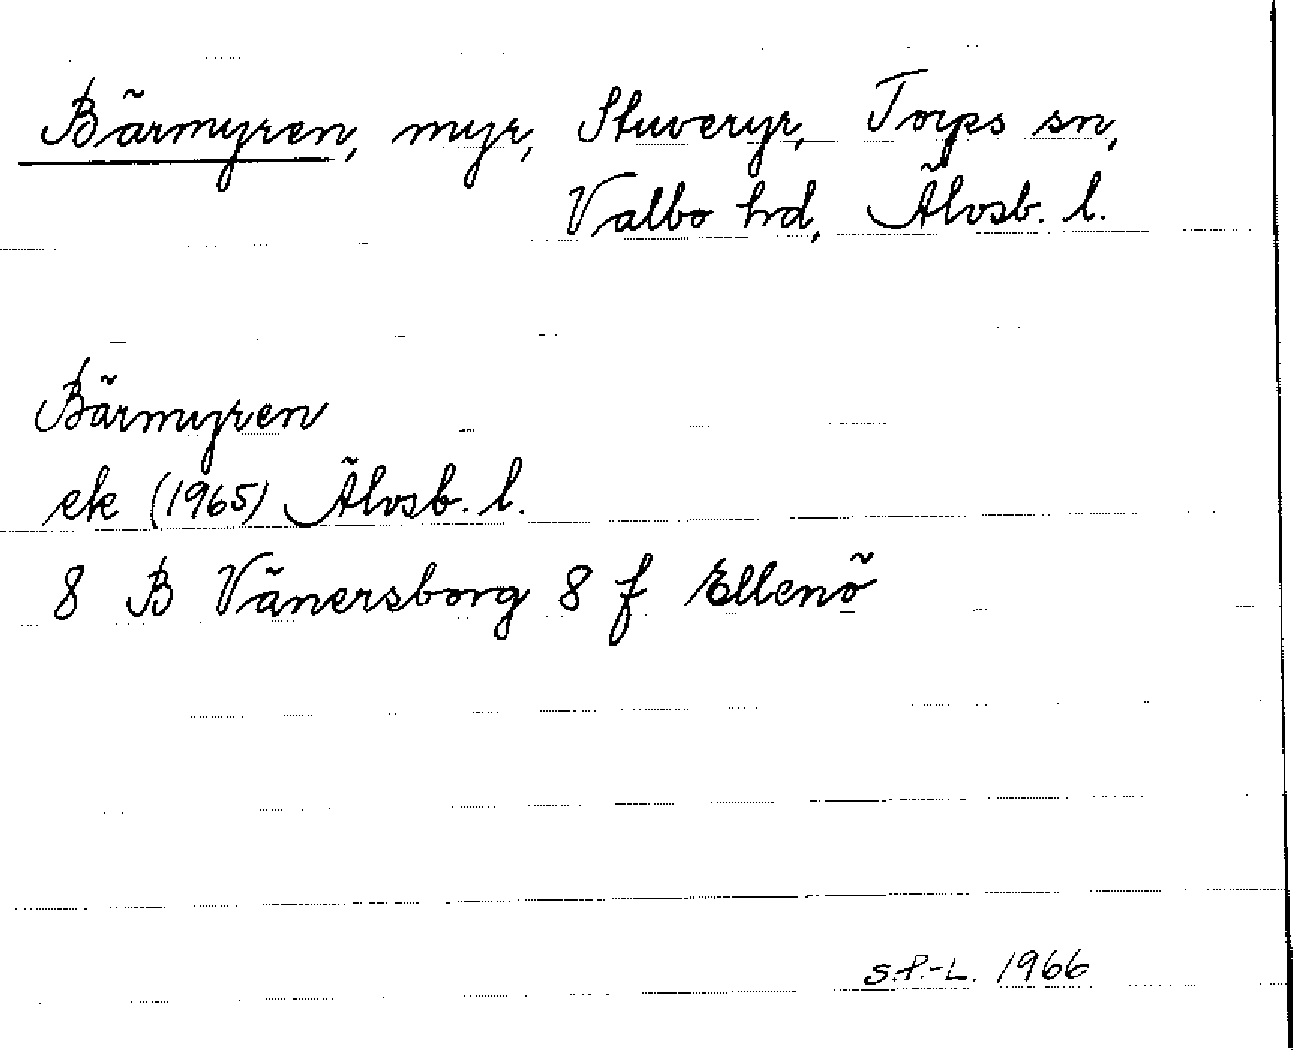 Bärmyren, myr, Stuveryr, Torps sn,
Valbo hd, Älvsb. l.
Bärmyren
ek (1965) Älvsb. l.
8 B Vänersborg 8 f Ellenö
S.P.-L. 1966